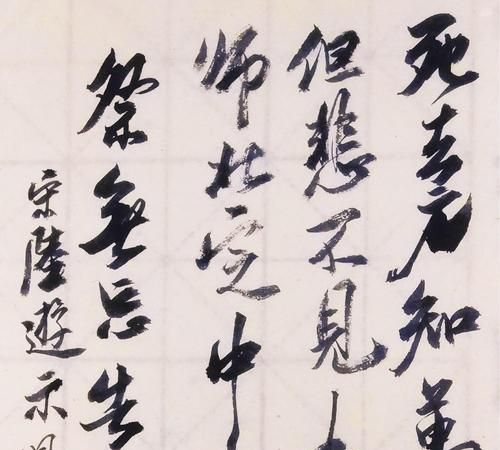 死去元知萬
但悲不見
師北定中
祭無忘告
宋陸遊示